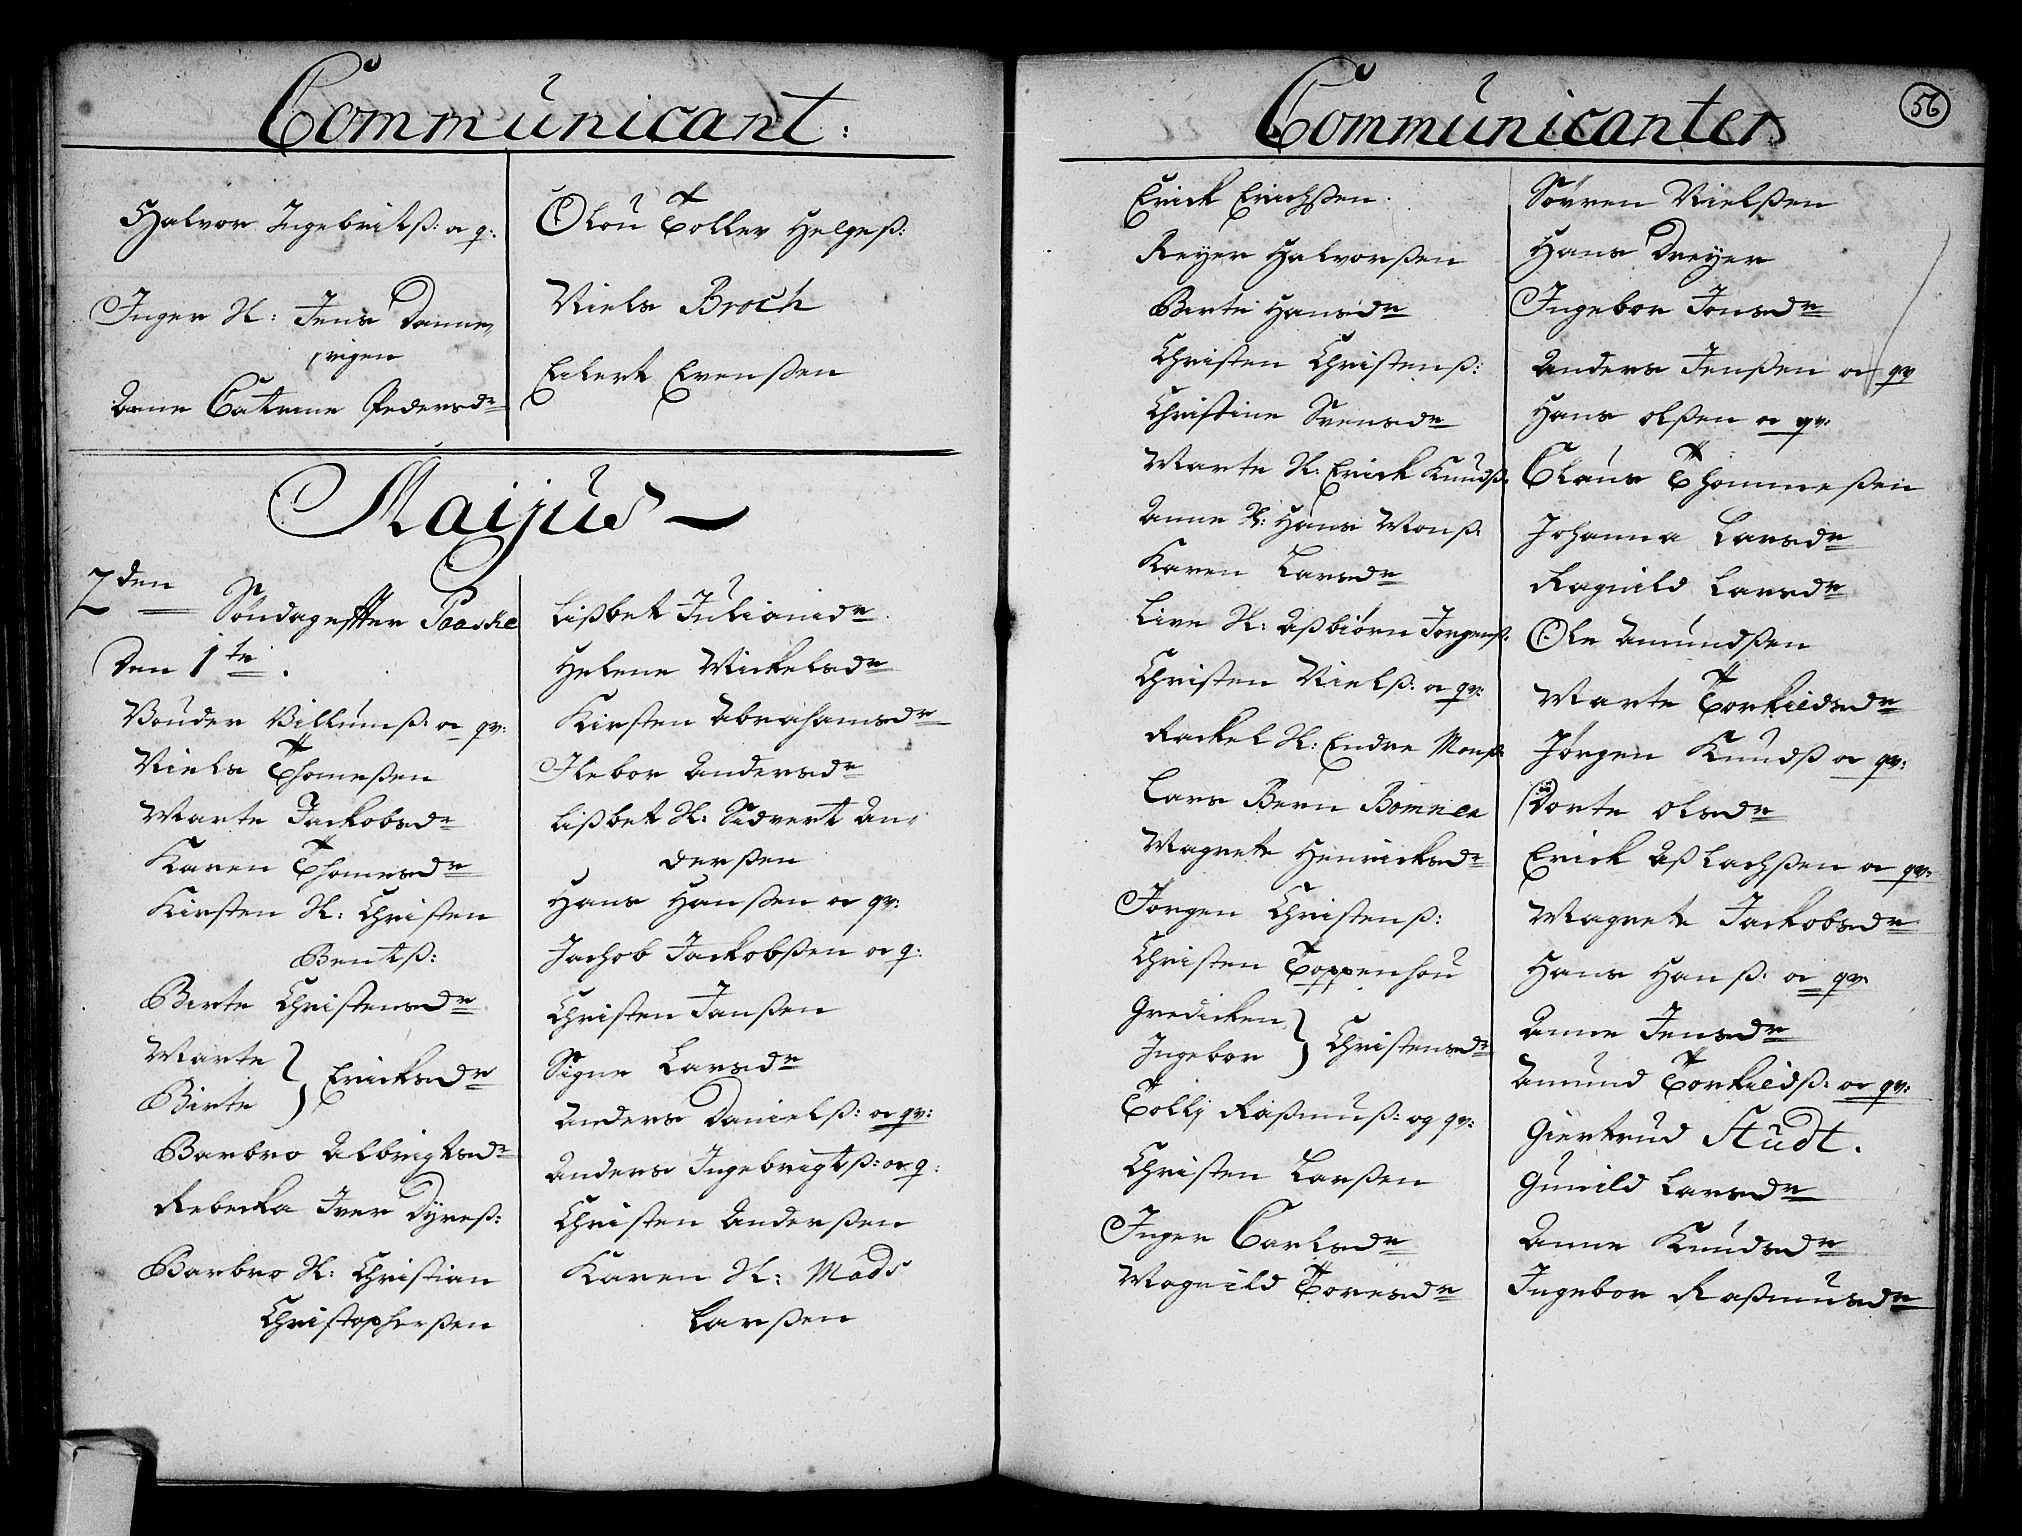 Communicant:
Halvor Ingebritß: o q:
Inger H: Jens Danne,
vigen
Anne Catrine Pedersdr
Olou Toller Helgeß:
Niels Broch
Eilert Evenßen
Maijus
2den Søndag effter Paaske
Den 1te.
Vouder Villumß: o qv:
Niels Thomeßen
Marte Jackobsdr
Karen Thomesdr
Kirsten H: Christen
Bentß:
Birte Christensdr
Marte } Ericksdr
Birte
Barbro Albrigtsdr
Rebecka Iver Dyreß:
Barbro H: Christian
Christopherßen
Lißbet Julianidr
Helene Mickelsdr
Kirsten Abrahamsdr
Ilebor Andersdr
Lißbet H: Sidvert An,
derßen
Hans Hanßen o qv:
Jachob Jackobßen o q:
Christen Janßen
Signe Larsdr
Anders Danielß: o qv:
Anders Ingebrigtß: o q:
Christen Anderßen
Karen H: Mads
Larßen
Communicanter
56
Erick Erichßen.
Reyer Halvorßen
Berte Hansdr
Christen Christenß:
Christine Svensdr
Marte H: Erick Knudß.
Anne H: Hans Monß.
Karen Larsdr
Live H: Aßbiørn Jørgenß.
Christen Nielß: o qv:
Rackel H: Endre Monß.
Lars Bern Bomnea
Magrete Henricksdr
Jørgen Christenß:
Christen Toppenhou
Gredicken } Christensdr
Ingebor
Tolly Raßmuß: og qv:
Christen Larßen
Inger Carlsdr
Magnild Toresdr
Søvren Nielßen
Hans Dreyer
Ingebor Jonsdr
Anders Jenßen o qv
Hans Olßen o qv:
Claus Thommeßen
Johanna Larsdr
Ragnild Larsdr
Ole Amundßen
Marte Torkildsdr
Jørgen Knudß o qv:
Dorte Olsdr
Erick Aßlachßen o qv:
Magrete Jackobsdr
Hans Hanß: o qv.
Anne Jensdr
Amund Torkildß: o qv:
Giertrud Studt.
Gunild Larsdr
Anne Knudsdr
Ingebor Raßmusdr